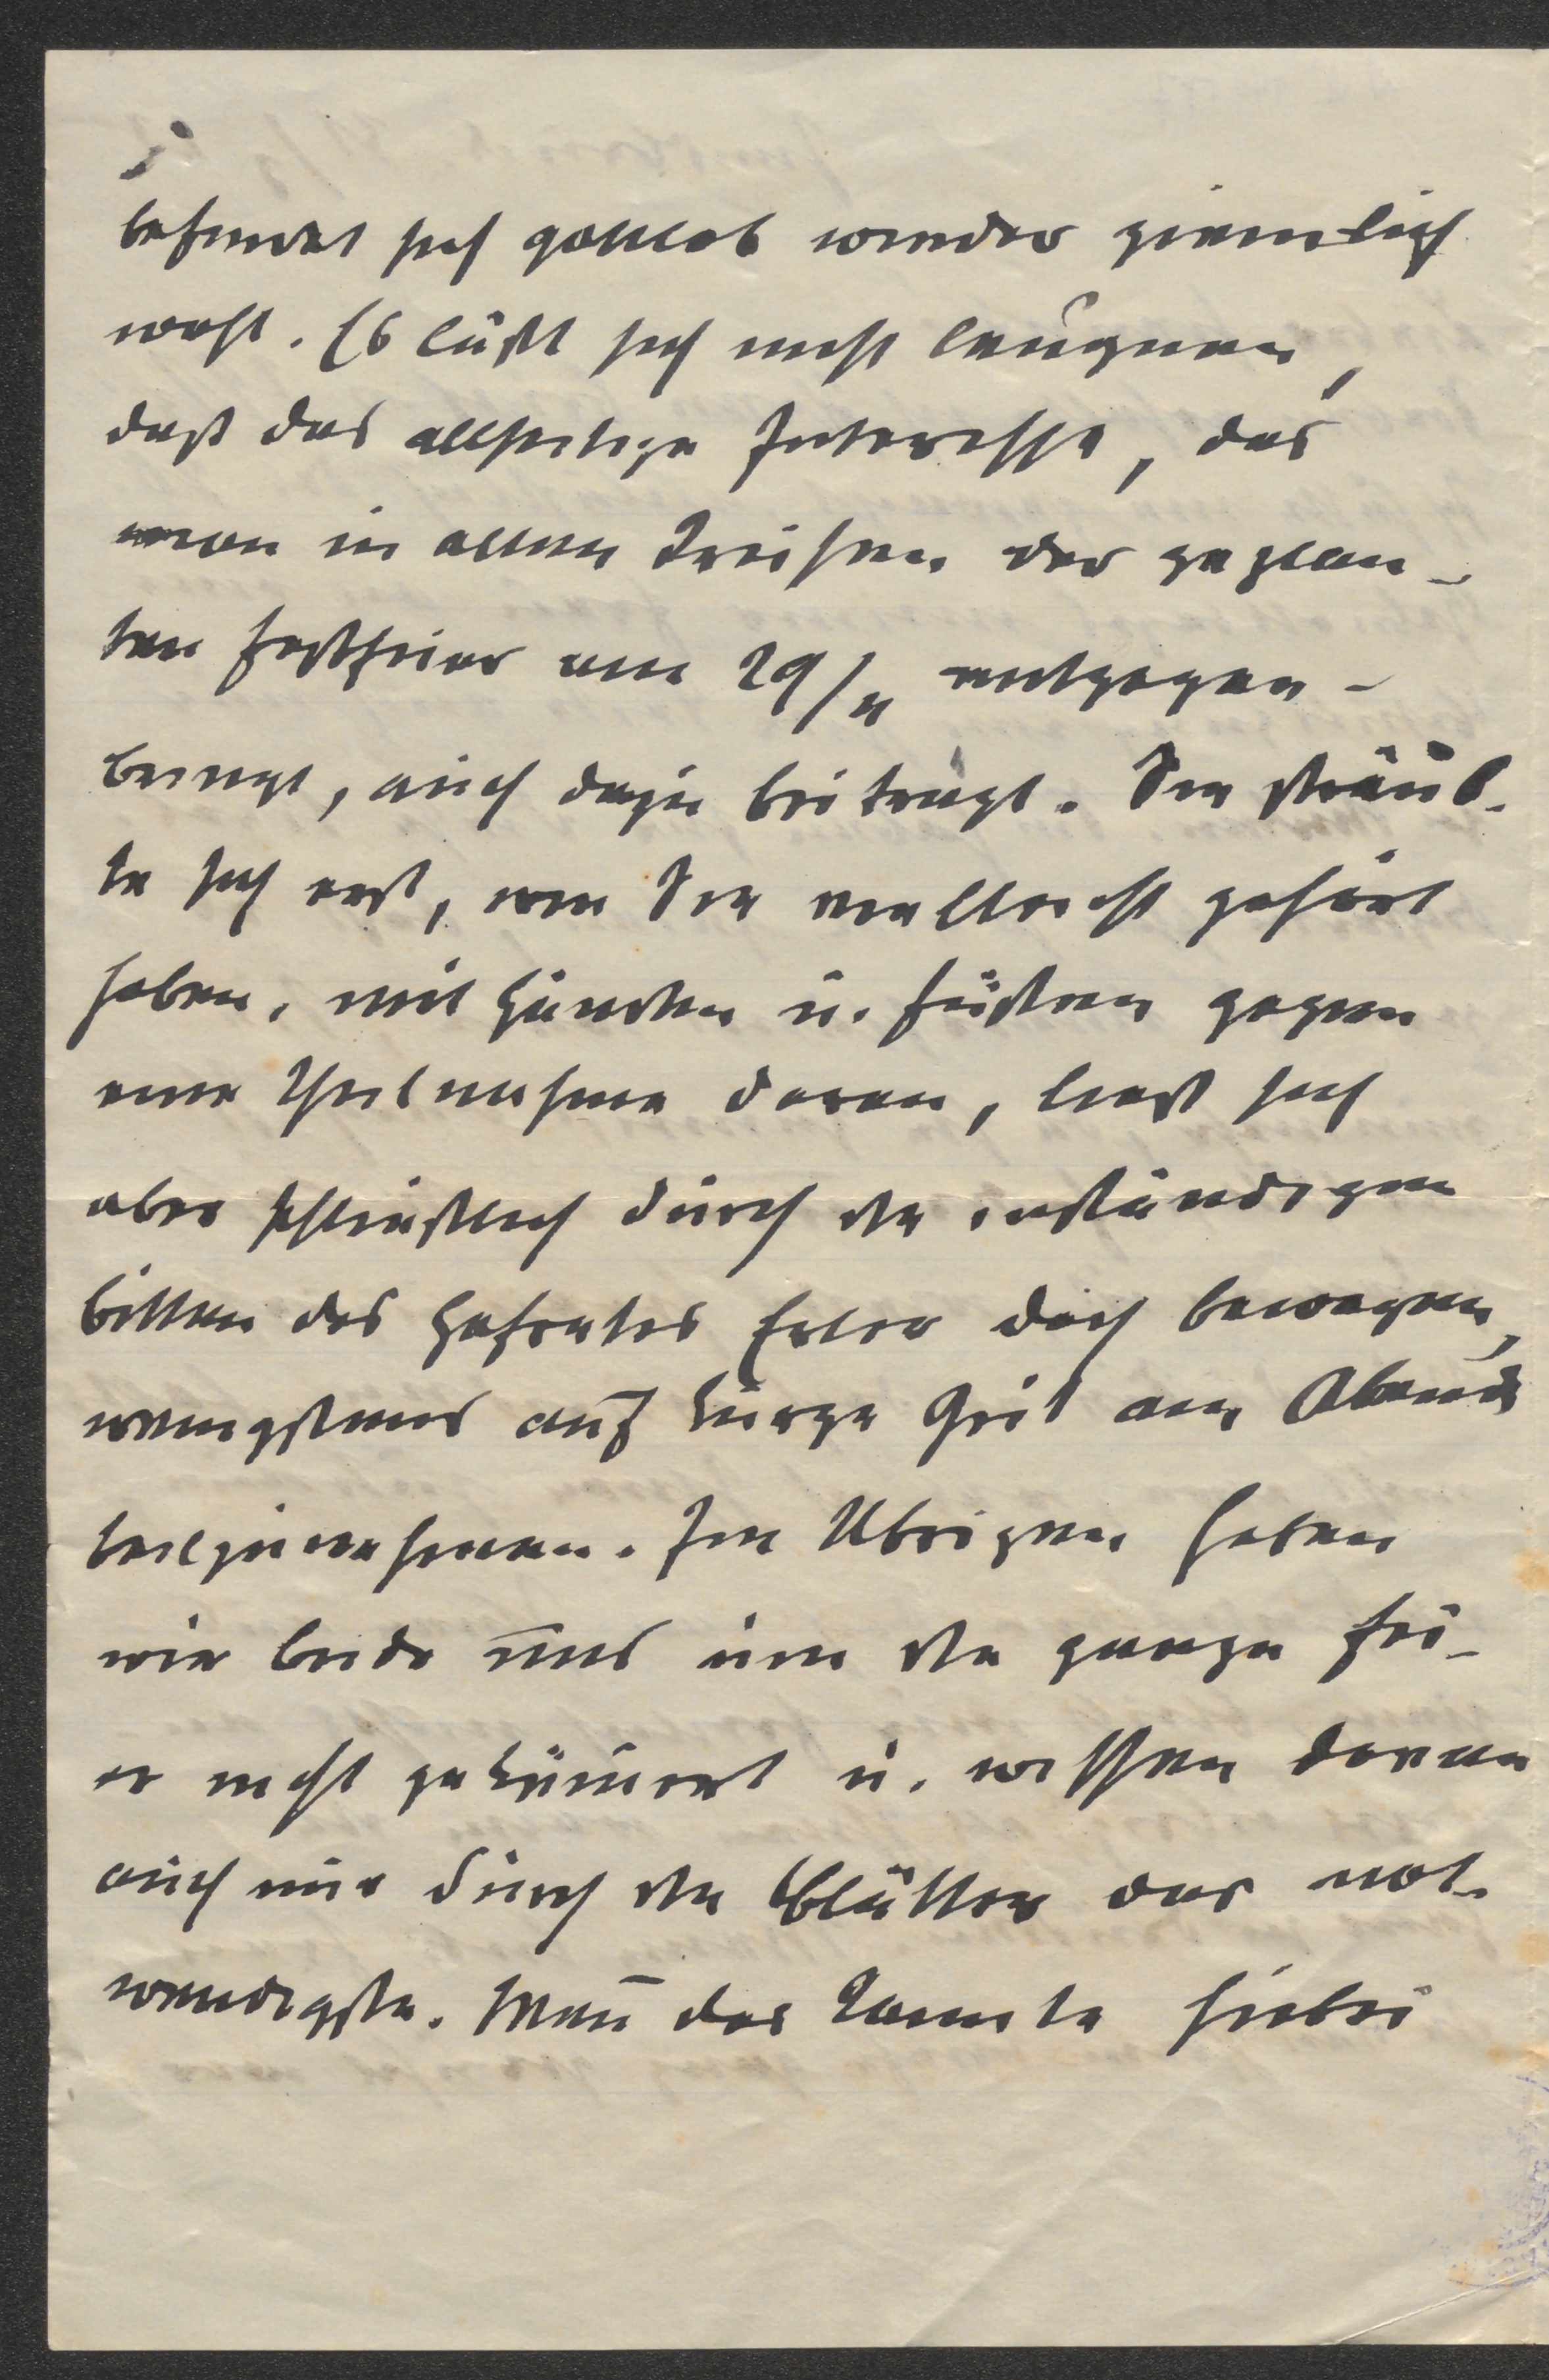 befindet sich gottlob wieder ziemlich
wohl. Es läßt sich nicht leugnen,
daß das allseitige Interesse, das
man in allen Kreisen der geplan-
ten Festfeier am 29/11 entgegen-
bringt, auch dazu beiträgt. Sie sträub-
te sich erst, wie Sie vielleicht gehört
haben, mit Händen u. Füßen gegen
eine Theilnahme daran, ließ sich
aber schließlich durch die inständigen
Bitten des Hofrates Erler doch bewegen,
wenigstens auf kurze Zeit am Abend
teilzunehmen. Im Übrigen haben
wir beide uns um die ganze Fei-
er nicht gekümert u. wissen davon
auch nur durch die Blätter das not-
wendigste. Wen die Tante hiebei